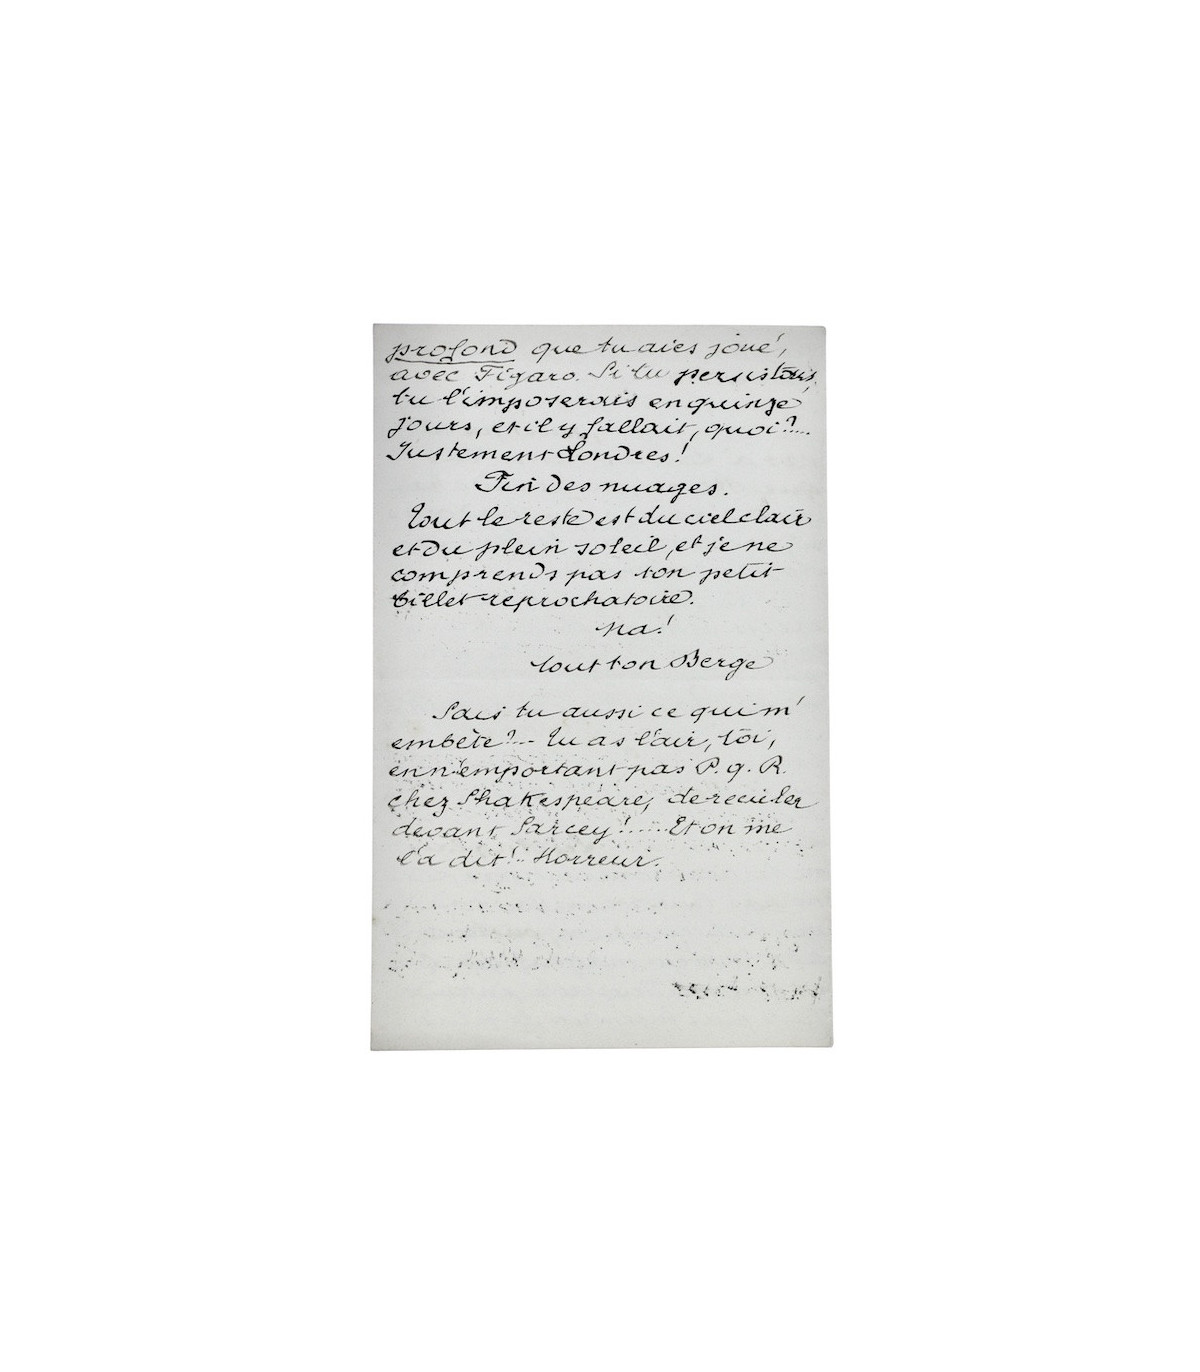 profond que tu aies joué,
avec Figaro. Si tu persistais,
tu l'imposerais en quinze
jours, et il y fallait, quoi?....
Justement Londres!
Fin des nuages.
Tout le reste est du ciel clair
et du plein soleil, et je ne
comprends pas ton petit
billet reprochatoire.
Na!
tout ton Berge
Sais tu aussi ce qui m'
embête?... Tu as l'air, toi,
en n'emportant pas P. q. R.
chez Shakespeare, de reculer
devant Sarcey!..... Et on me
l'a dit!.. Horreur.